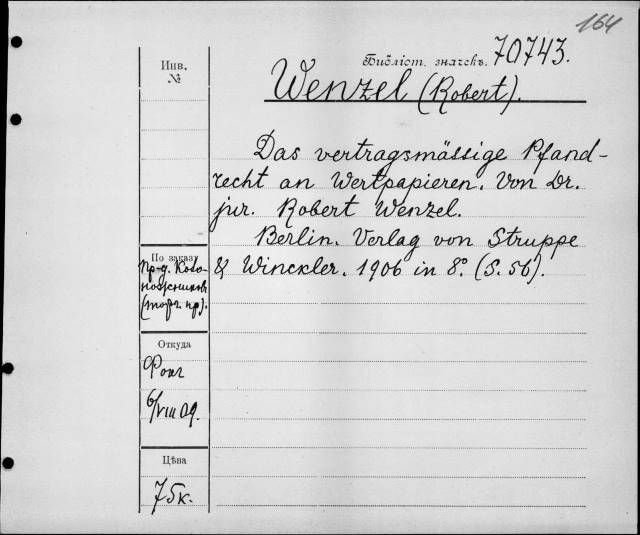 164
Инв.
№
Библіот. значекъ. 70743.
Wenzel (Robert).
Das vertragsmässige Pfand-
recht an Wertpapieren. Von Dr.
jur. Robert Wenzel.
Berlin. Verlag von Struppe
& Winckler. 1906 in 8° (S. 56).
По заказу
Пр-д.
(торг. пр).
Откуда
6/VIII 09.
Цѣна
75 к.